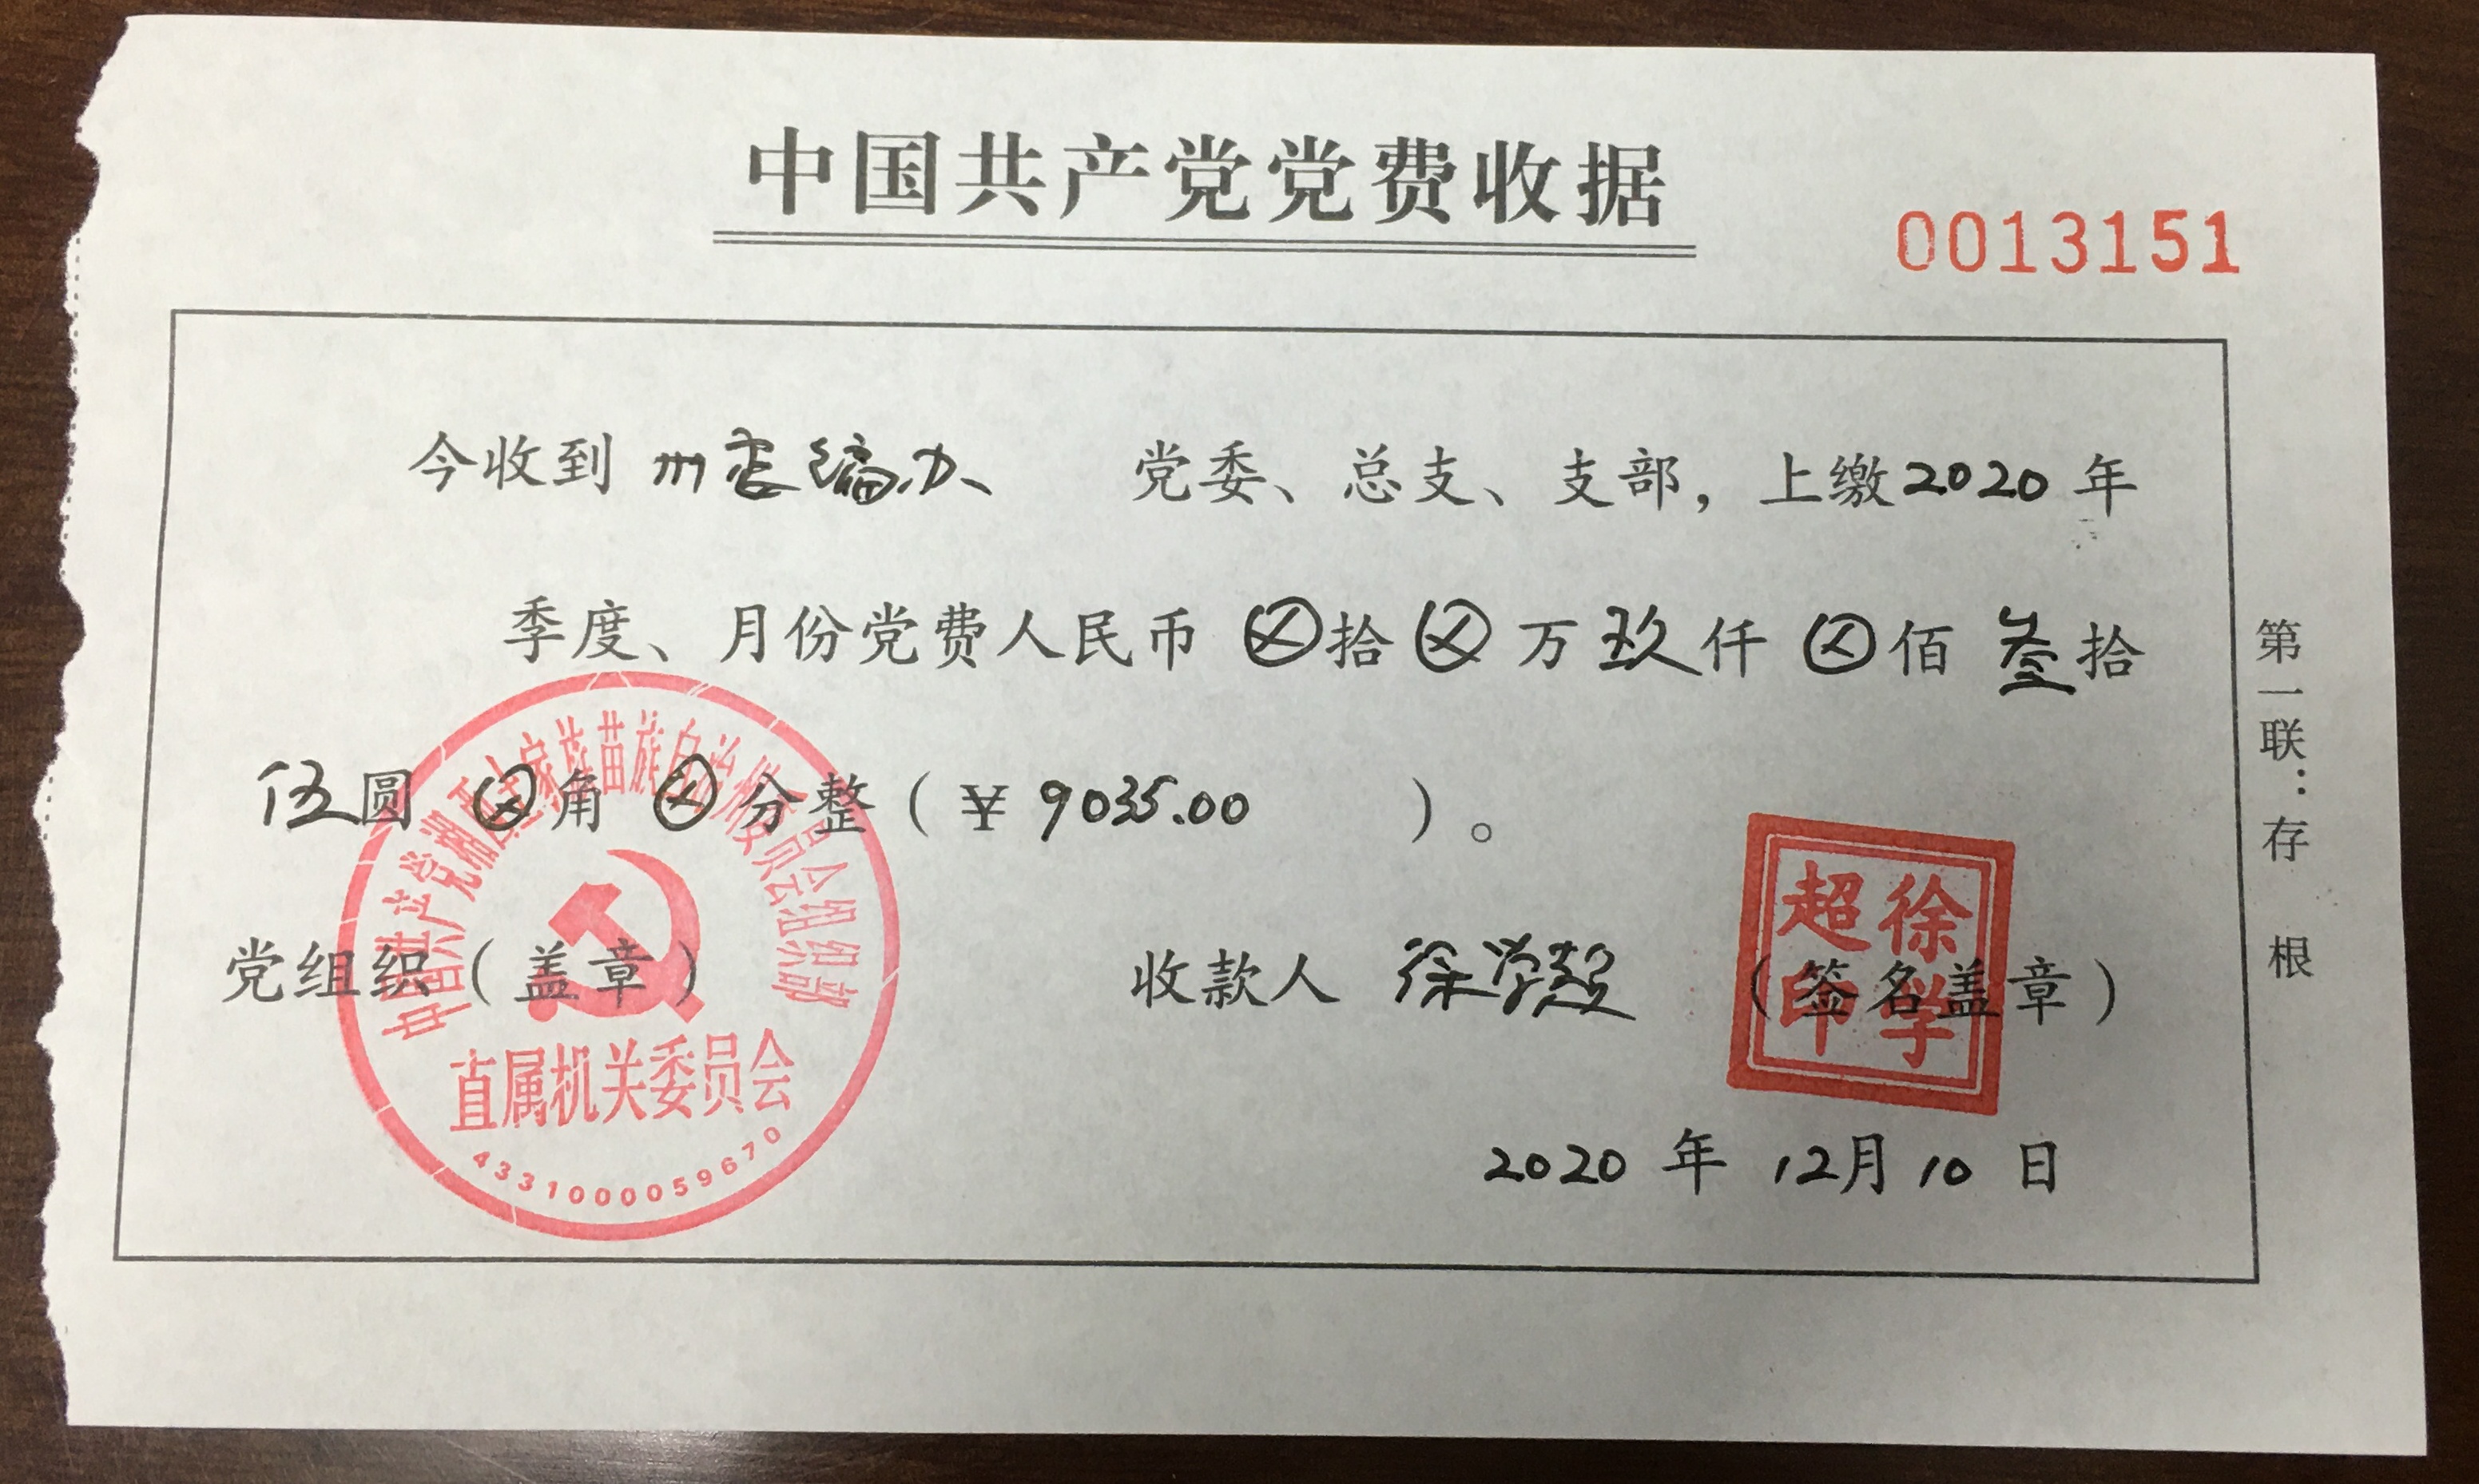 中国共产党党费收据
0013151
今收到 州委编办 党委、总支、支部，上缴2020年
季度、月份党费人民币 ⊗拾 ⊗万 玖仟 ⊗佰 叁拾
伍圆 ⊗角 ⊗分整（￥9035.00 ）。
党组织（盖章） 收款人 徐学超 （签名盖章）
2020 年 12月 10 日
第一联：存 根
中国共产党湘西土家族苗族自治州委员会组织部
直属机关委员会
4331000059670
徐学超印